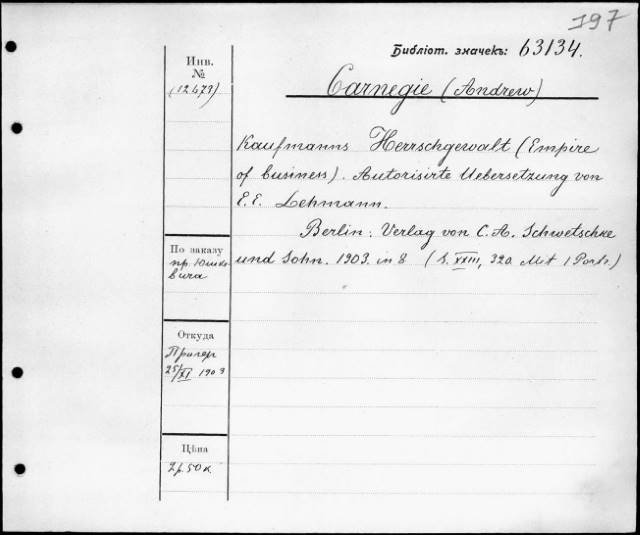 197
Библіот. значекъ: 63134.
Carnegie (Andrew)
Инв.
№
(12473)
Kaufmanns Herrschgewalt (Empire
of business). Autorisirte Uebersetzung von
E. E. Lehmann.
Berlin: Verlag von C. A. Schwetschke
und Sohn. 1903. in 8 (S. XXIII, 320. Mit 1 Portr.)
По заказу
пр. Юшке-
вича
Откуда
25/XI 1903
Цѣна
2 р. 50 к